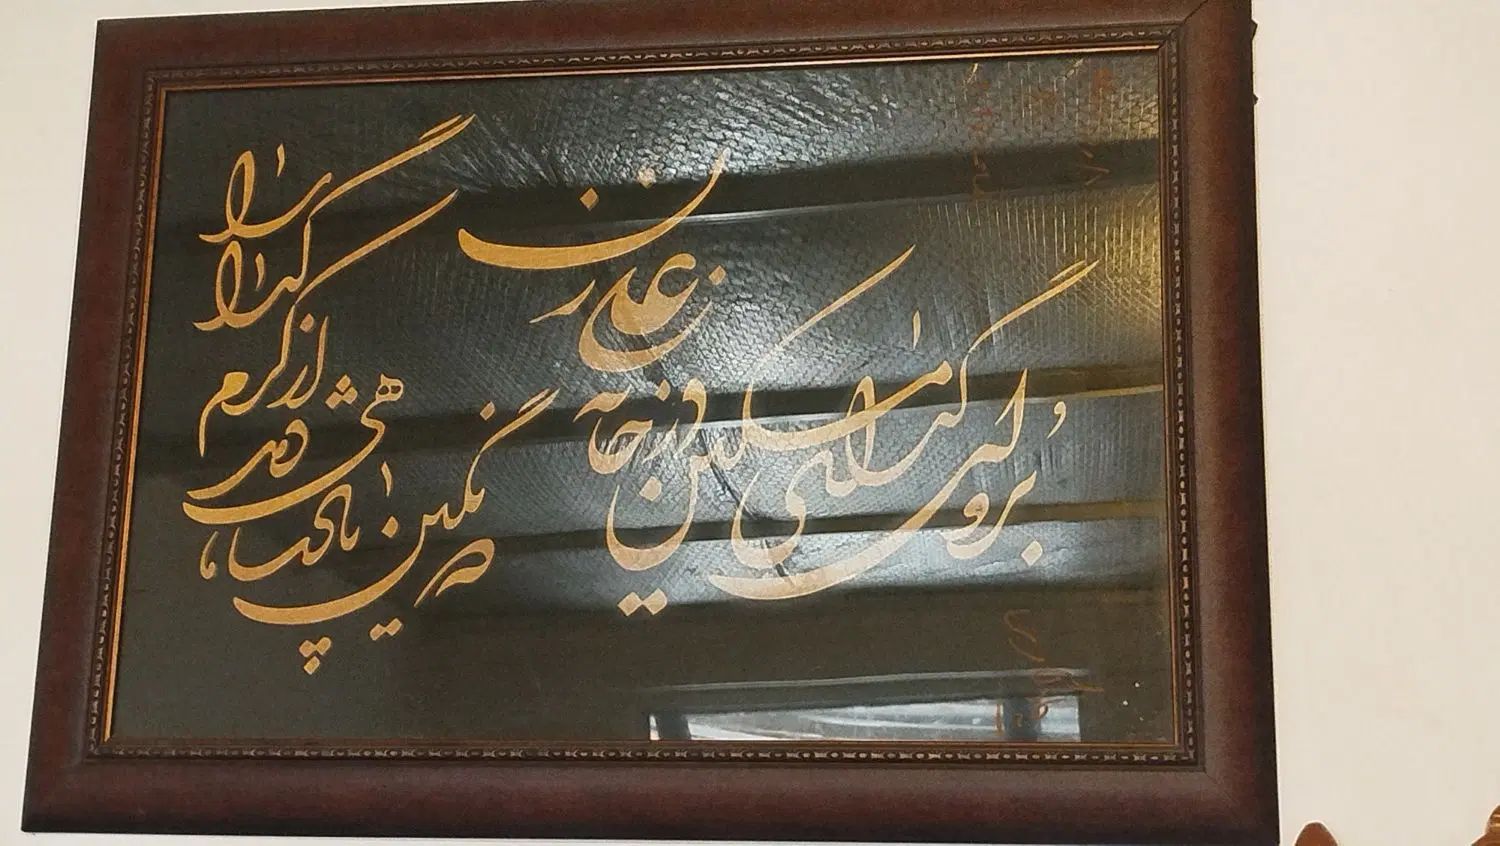 برو ای گدای مسکین در خانه علی زن
که نگین پادشاهی دهد از کرم گدا را